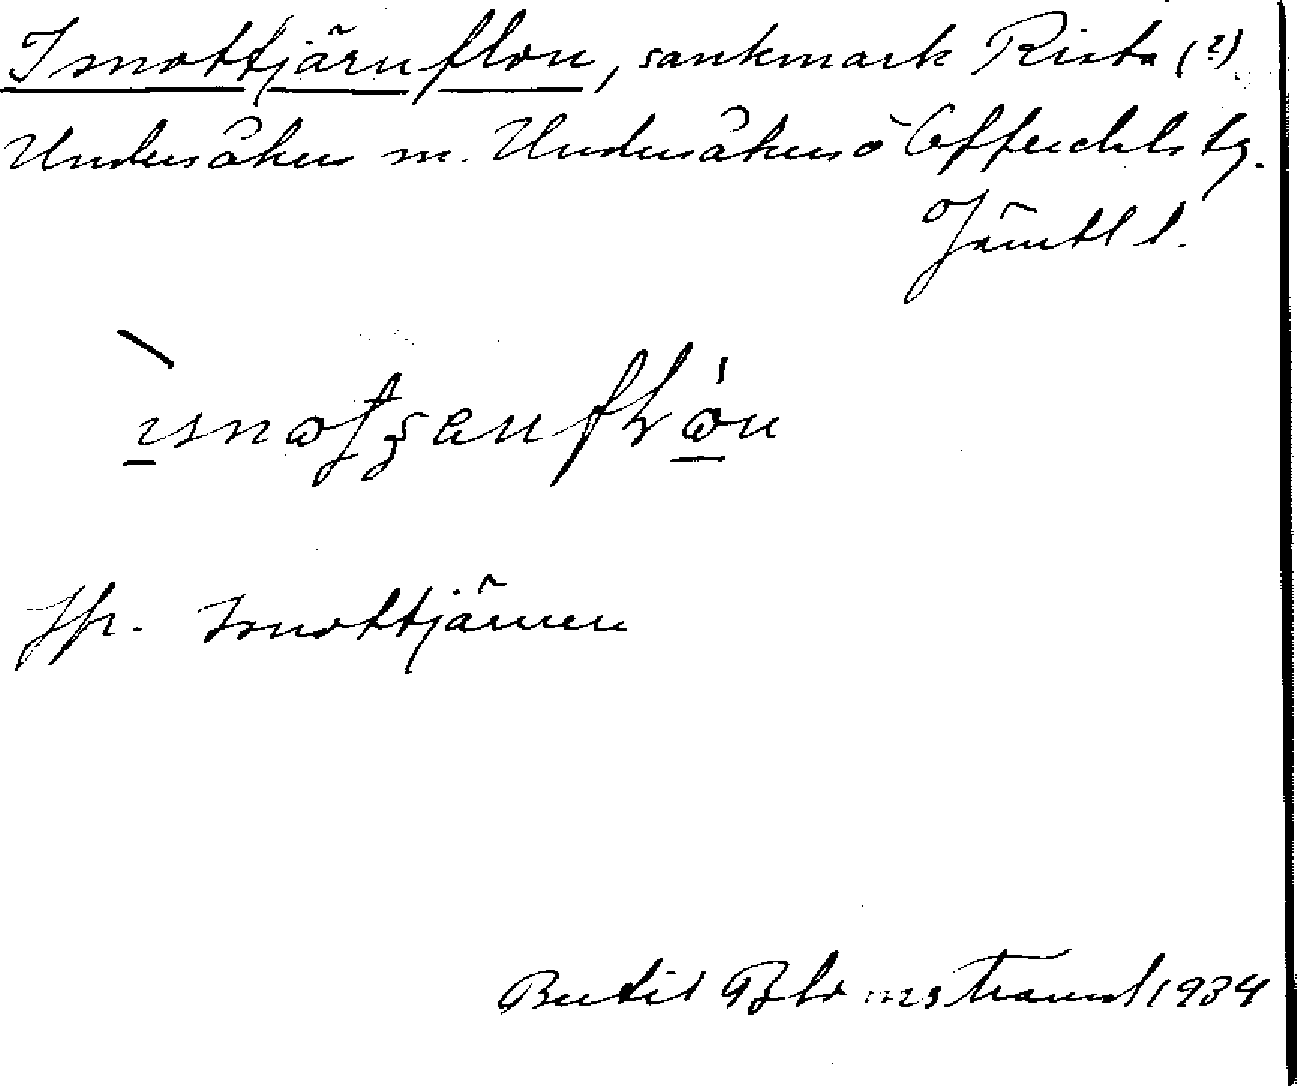 Ismottjärnflon, sankmark Rista (?)
Undersåkers sn. Undersåkers o Offerdals tg.
Jämtl l.
Jfr. Ismottjärnen
Bertil Blomstrand 1934